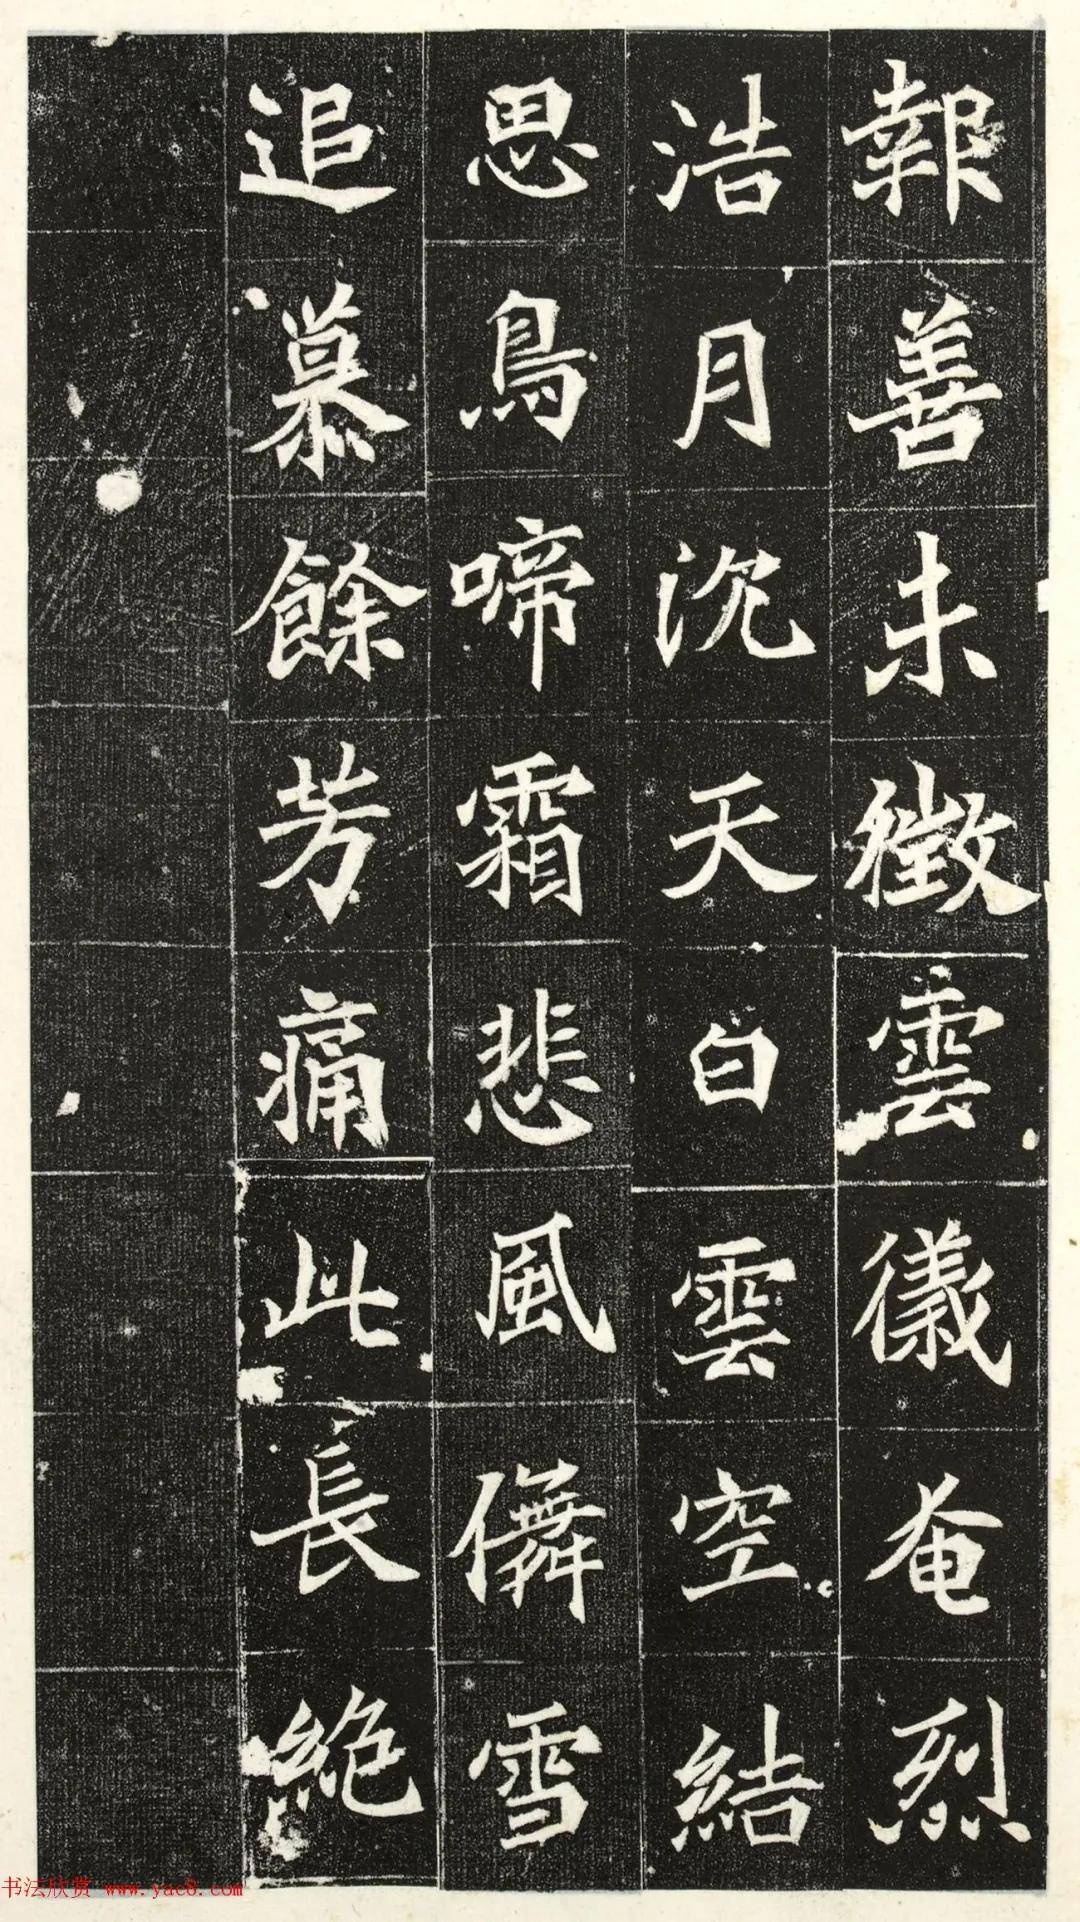 報善未徵雲儀奄烈
浩月沉天白雲空結
思鳥啼霜悲風儛雪
追慕餘芳痛此長絕
书法欣赏 www.yac8.com